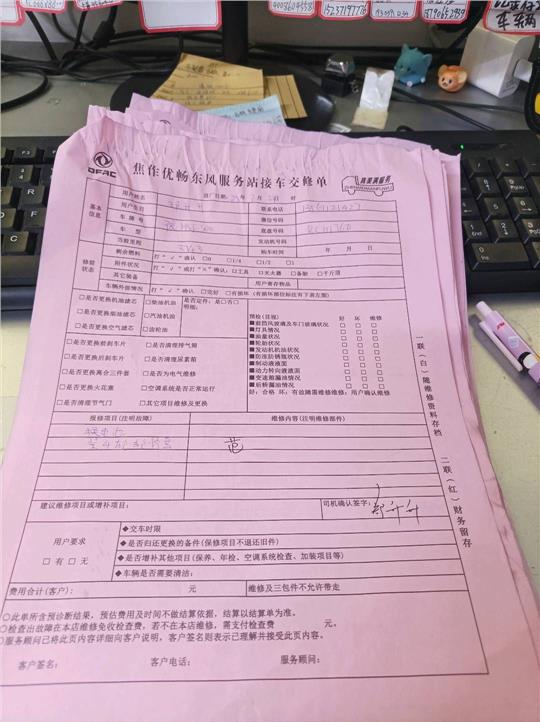 4008604558
15237197776
车车两
DFAC
焦作优畅东风服务站接车交修单
真要满服务
基本信息
用户姓名
出厂日期 年 月 日 时
用户生日
联系电话
车牌号
微信号码
车型
底盘号码
当前里程
发动机号码
购车时间 年 月 日
修前状态
剩余燃料 打“√”确认 □0 □1/4 □1/2 □1
附件状况 打“√”或打“×”确认:□工具 □灭火器 □备胎 □千斤顶
其它装备
用户寄存物品
车辆外部情况 打“√”确认 □完好 □有损坏(有损部位标注有下表左图)
□是否更换机油滤芯 □柴油机油
□是否更换柴油滤芯 □汽油机油
□是否更换空气滤芯 □齿轮油
是否定件:是□否□
明细:
□是否更换前刹车片 □是否清理排气筒
□是否更换后刹车片 □是否清理尿素箱
□是否更换离合三件套 □是否为电气维修
□是否更换火花塞 □空调系统是否正常运行
□是否清理节气门 □其它项目维修及更换
预检(目视) 好 坏 维修
■前挡风玻璃及车门玻璃状况 □ □ □
■灯具情况 □ □ □
■油量状况 □ □ □
■轮胎状况 □ □ □
■发动机机油状况 □ □ □
■防冻防锈瓶状况 □ □ □
■制动液液面 □ □ □
■动力转向液液面 □ □ □
■变速箱漏油情况 □ □ □
■后桥漏油情况 □ □ □
好:合格 坏:有故障需维修维修:用户确认维修
报修项目(注明故障)
维修内容(注明维修部件)
范
建议维修项目或增补项目:
司机确认签字:
用户要求
□有 □无
◆交车时限
◆是否归还更换的备件(保修项目不退还旧件)
◆是否增补其他项目(保养、年检、空调系统检查、加装项目等)
◆车辆是否需要清洁:
费用合计(客户): 元
维修及三包件不允许带走
○此单所含预诊断结果,预估费用及时间不做结算依据,结算以结算单为准。
○检查出故障在本店维修免收检查费,若不在本店维修,需支付检查费 元。
○服务顾问已将此页内容详细向客户说明,客户签名则表示已理解并接受此页内容。
客户签名: 客户电话: 服务顾问:
一联(白)随维修资料存档
二联(红)财务留存